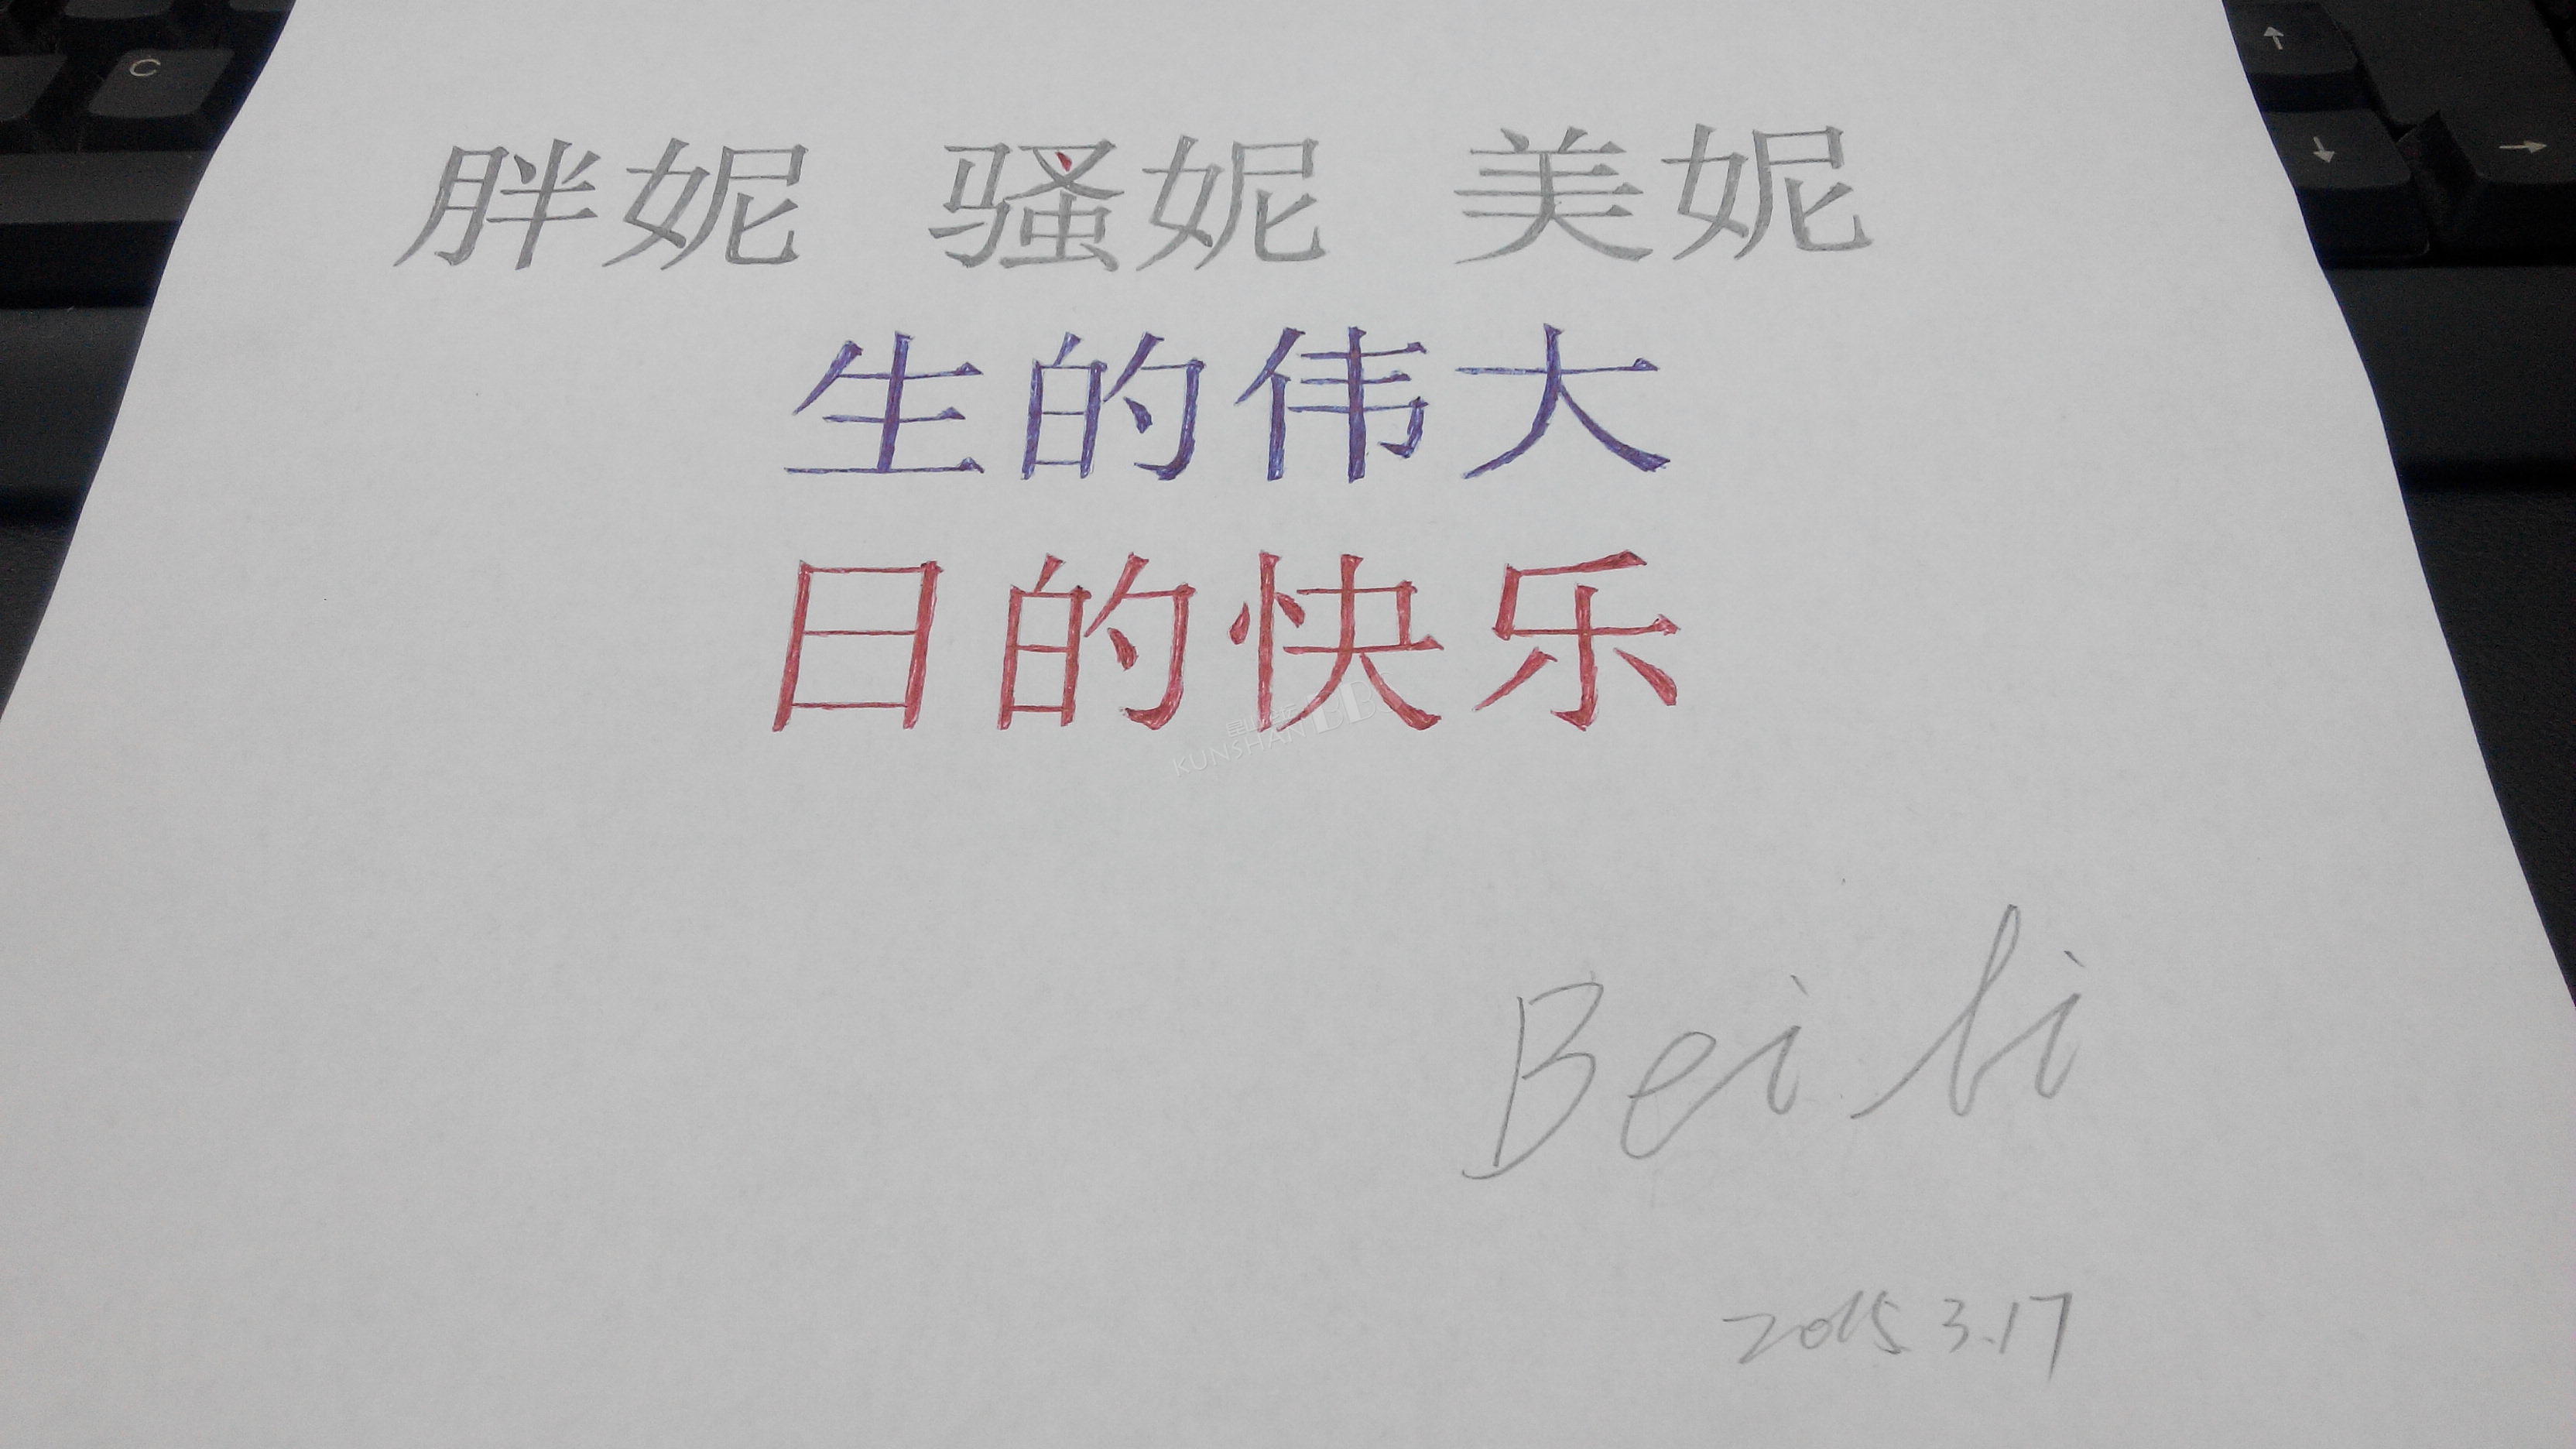 胖妮 骚妮 美妮
生的伟大
日的快乐
KUNSHAN BB
Bei li
2015 3.17
C
↑
↓
→